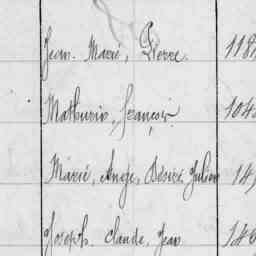 Jean. Marié, Pierre. 118
Mathurin, françois. 104
Marié, Ange, Désiré Julien 14
Joseph. Claude, Jean 146